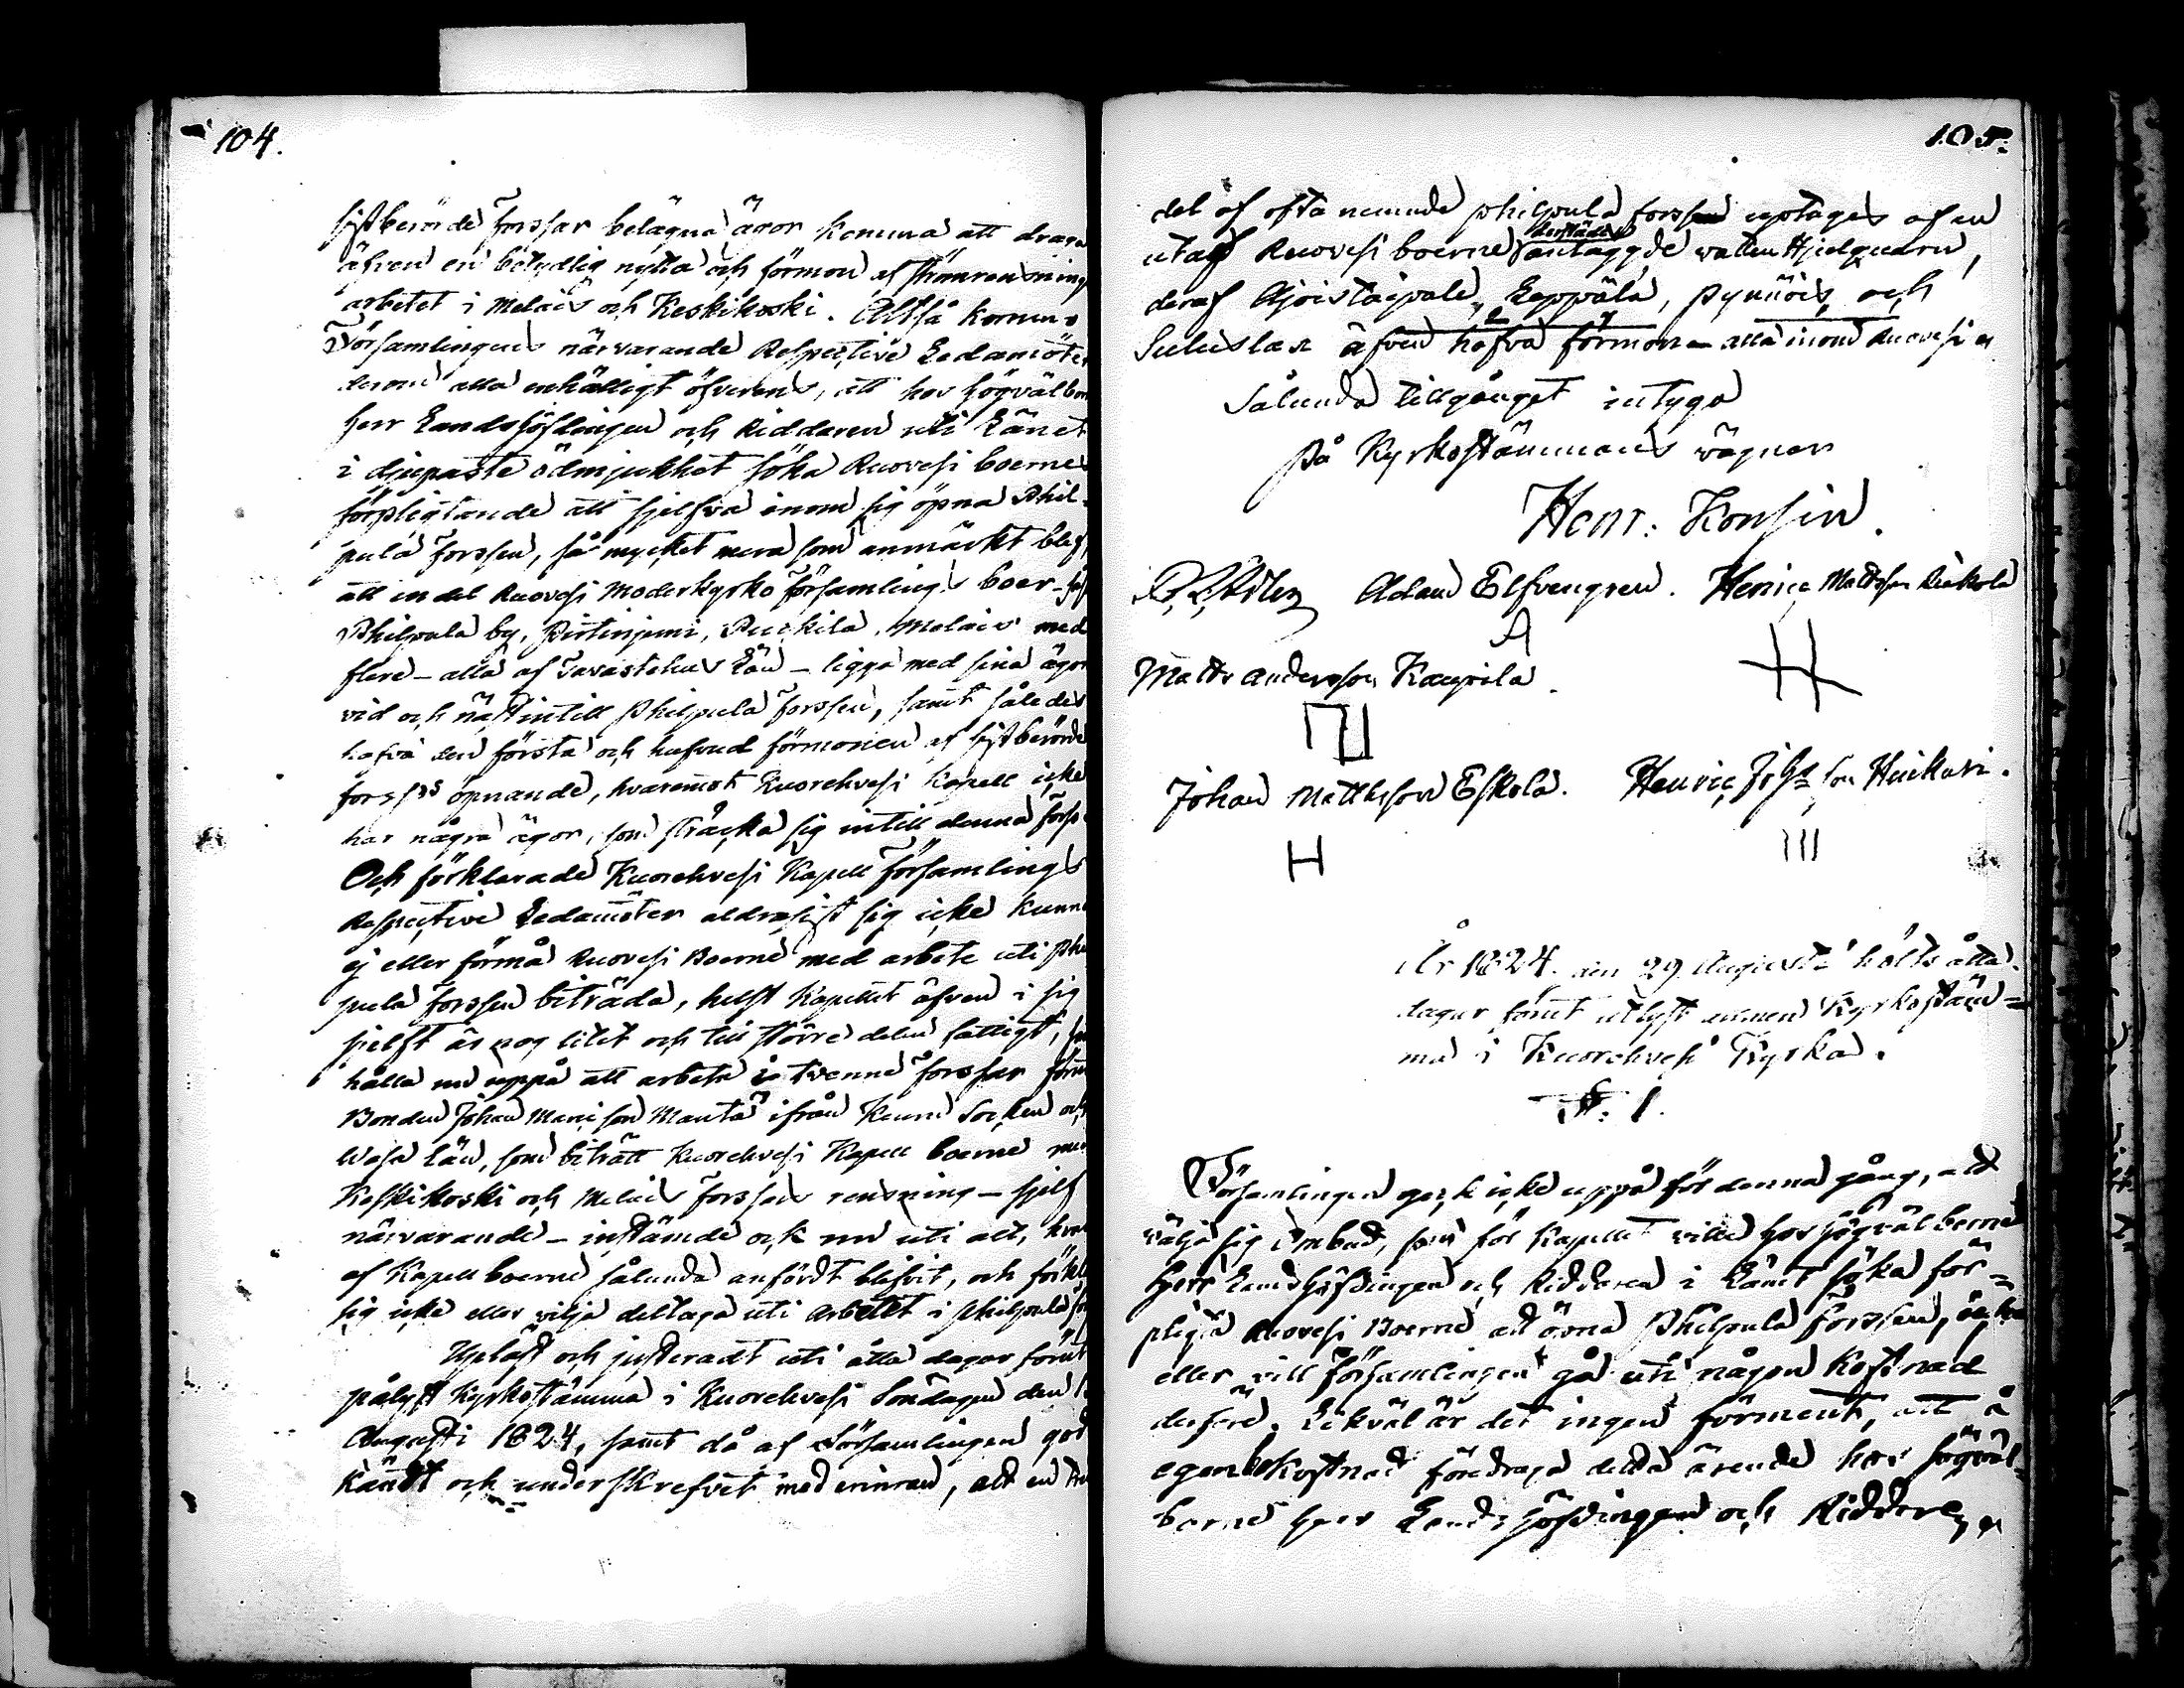 104.
sistberörde Forssar belägna ägor komma att draga
äfven en betydlig nytta och förmon af strömrensnings
arbetet i Melais och Keskikoski. Altså kommo
Församlingens närvarande Respective Ledamöter
derom alla enhälligt öfverens, att hos Högvälborne
Herr Landshöfdingen och Riddaren uti Länet
i djupaste ödmjukhet söka Ruovesi boernes
förpligtande att sjelfva inom sig öpna Phil-
pula Forssen, så mycket mera som anmärkt blef,
att en del Ruovesi Moderkyrko Församlings boer
Philpula by, Pirtinjemi, Melais med
flere – alla af Tavastehus Län – ligga med sina ägor
vid och näst intill Philpula Forssen, samt således
hafva den första och hufvud förmonen af sistberörde
forsses öpnande, hvaremot Kuorehvesi Kapell icke
har några ägor, som sträcka sig intill denna forss.
Och förklarade Kuorehvesi Kapell Församlings
Respective Ledamöter aldrasist sig icke kunna
ej eller förmå Ruovesi Boerne med arbete uti Phil
pula Forssen biträda, helst Kapellet äfven i sig
sjelft är nog litet och till större delen fattigt,
hålla nu uppå att arbeta i tvenne Forssar förut
Bonden Johan Manisson Mänttä ifrån Keuru Socken och
Wasa Län, som biträtt Kuorehvesi Kapell boerne med
Keskikoski och Melais Forssens rensning – sjelf
närvarande – instämde ock nu uti alt, hvad
af Kapell boerne sålunda anfördt blifvit, och förkl
sig icke eller vilja deltaga uti arbetet i Philpula
Upläst och justeradt uti åtta dagar förut
pålyst Kyrkostämma i Kuorehvesi Söndagen den
Augusti 1824, samt då af Församlingen god
kändt och underskrefvet med erinran, att en
105.
del af ofta nemnde Philpula forssen uptages af en
utaf Ruovesi boerne derstädes anlaggde vatten Hjulquarn,
deraf Ajoistaipale, Leppälä, Pynnöis och
Suluslax äfven hafva förmon – alla inom Ruovesi
Sålunda tillgånget intyga
På Kyrkostämmans vägnar
Henr: Konsin.
Adam Elfvengren. Henric Mattsson
A
Matts Andersson Kaupila.
Johan Matthsson Eskola. Henric Johs son
H
III
År 1824. den 29 Augusti hölts åtta
dagar förut utlyst allmen Kyrkostäm=
ma i Kuorehvesi Kyrka.
§. 1.
Församlingen gick icke uppå för denna gång, att
välja sig Ombud, som för Kapellet ville hos Högvälborne
Herr Landshöfdingen och Riddaren i Länet söka för=
pligta Ruovesi Boerne att öpna Philpula Forssen, icke
eller vill Församlingen gå uti någon Kostnad
derföre. Likväl är det ingen förment, att å
egen bekostnad föredraga detta ärende hos Högväl=
borne Herr Landshöfdingen och Riddare